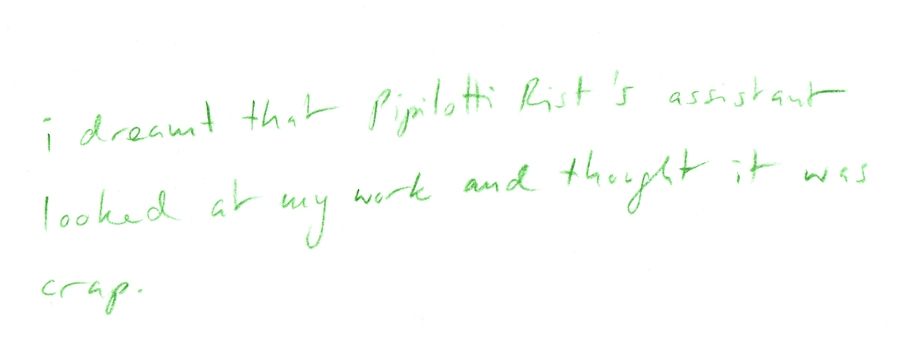 i dreamt that Pipilotti Rist's assistant
looked at my work and thought it was
crap.